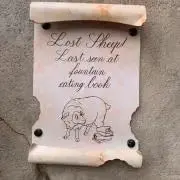 Lost Sheep!
Last seen at
fountain
eating book